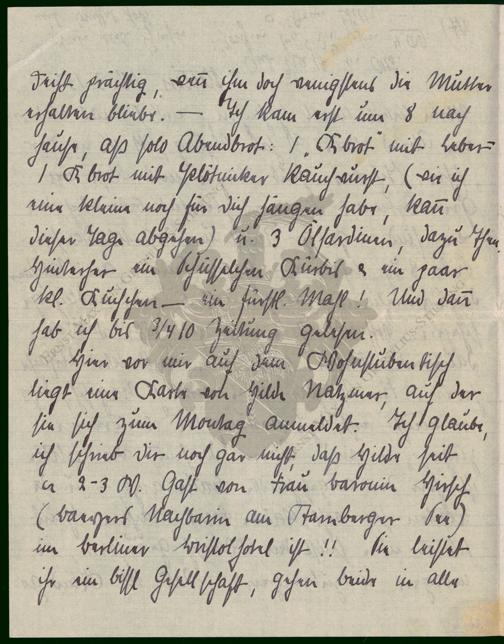 prächtig, wenn ihm doch wenigstens die Mutter
erhalten bliebe. — Ich kam erst um 8 nach
Hause, aß solo Abendbrot: 1 „Kbrot" mit Leber-
1 Kbrot mit Rauchwurst, (wie ich
eine kleine noch für dich hängen habe, kann
dieser Tage abgehen) u. 3 Ölsardinen, dazu Thee.
Hinterher ein Schüsselchen Kürbis & ein paar
kl. Kuchchen — ein fürstl. Mahl! Und dann
hab ich bis 3/4 10 Zeitung gelesen.
Hier vor mir auf dem Wohnstubentisch
liegt eine Karte von Hilde Natzmer, auf der
sie sich zum Montag anmeldet. Ich glaube,
ich schrieb dir noch gar nicht, daß Hilde seit
2-3 W. Gast von Frau Baronin Hirsch
( Nachbarin am Starnberger See)
im Berliner Bristolhotel ist!! Sie leistet
ihr ein bissl Gesellschaft, gehen beide in alle